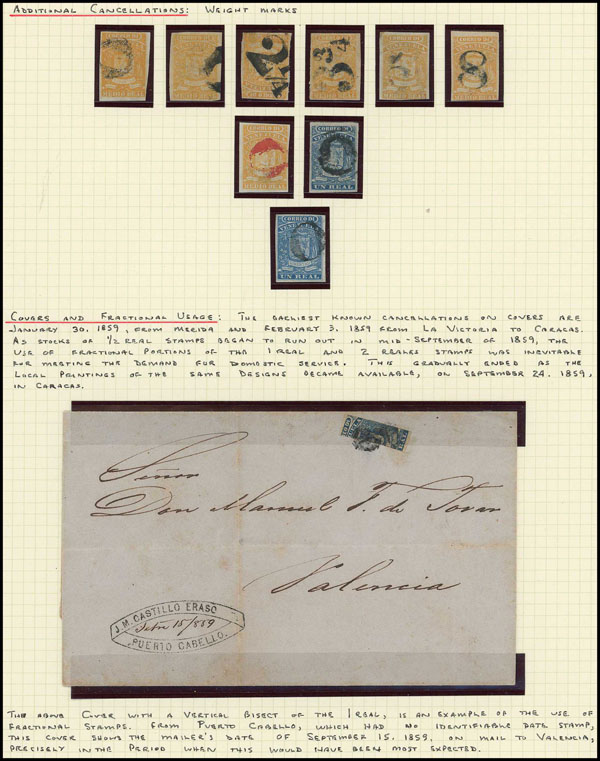 Additional Cancellations: Weight marks
3/4
8
CORREO DE
VENEZUELA
MEDIO REAL
CORREO DE
VENEZUELA
UN REAL
CORREO DE
VENEZUELA
UN REAL
Covers and Fractional Usage: The earliest known cancellations on covers are
January 30, 1859, from Merida and February 3, 1859 from La Victoria to Caracas.
As stocks of 1/2 real stamps began to run out in mid-September of 1859, the
use of fractional portions of the 1 real and 2 reales stamps was inevitable
for meeting the demand for domestic service. This gradually ended as the
local printings of the same designs became available, on September 24, 1859,
in Caracas.
Señor
Don Manuel F. de Tovar
Valencia
J. M. CASTILLO ERASO
Setre 15/859
PUERTO CABELLO.
The above cover with a vertical bisect of the 1 real, is an example of the use of
fractional stamps. From Puerto Cabello, which had no identifiable date stamp,
this cover shows the mailer's date of September 15, 1859, on mail to Valencia,
precisely in the period when this would have been most expected.